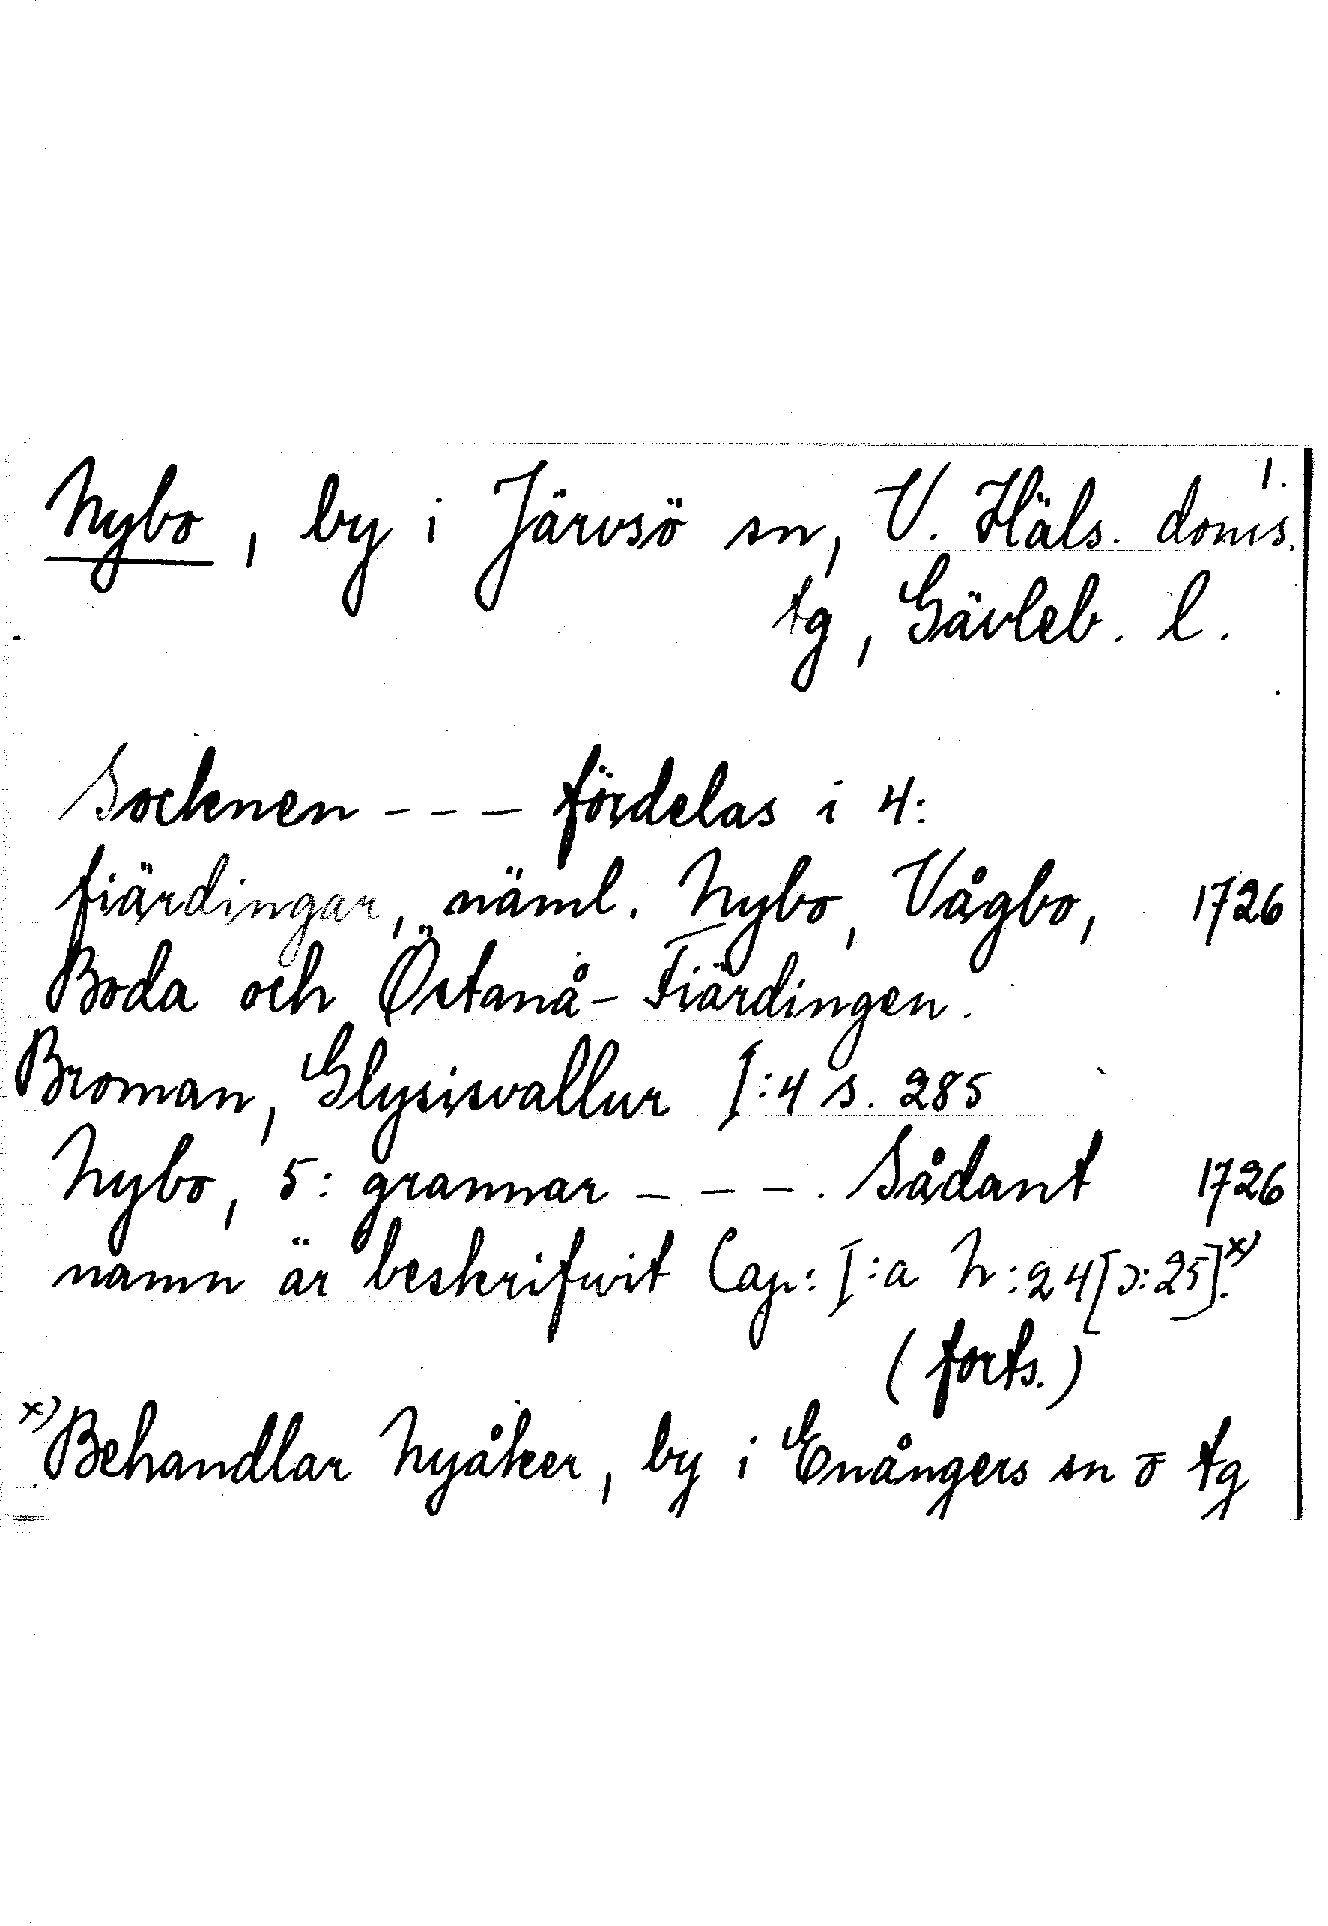 1.
Nybo, by i Järvsö sn, V. Häls. doms.
tg, Gävleb. l.
Socknen - - - fördelas i 4:
fiärdingar, näml. Nybo, Vågbo, 1726
Boda och Östanå-Fiärdingen.
Broman, Glysisvallur I:4 s. 285
Nybo, 5: grannar - - -. Sådant 1726
namn är beskrifwit Cap: I:a N:24[ɔ:25].x)
(forts.)
x) Behandlar Nyåker, by i Enångers sn o tg